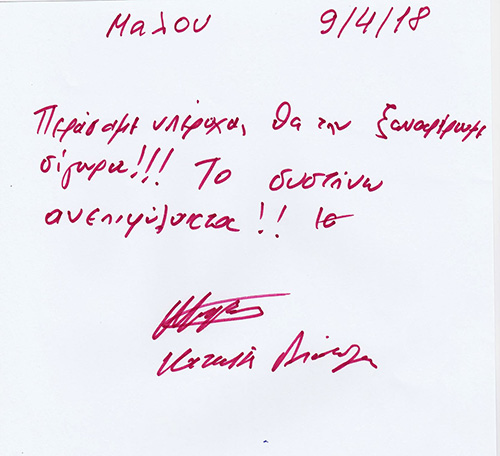 Μαλου 9/4/18
Περάσαμε υπέροχα, θα την ξαναφέρουμε
σίγουρα!!! Το συστήνω
ανεπιφύλακτα!!